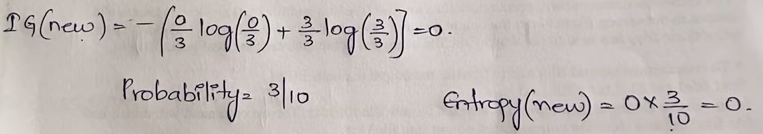 IG(new) = - [0/3 log(0/3) + 3/3 log(3/3)] = 0.
Probability = 3/10
Entropy(new) = 0 × 3/10 = 0.